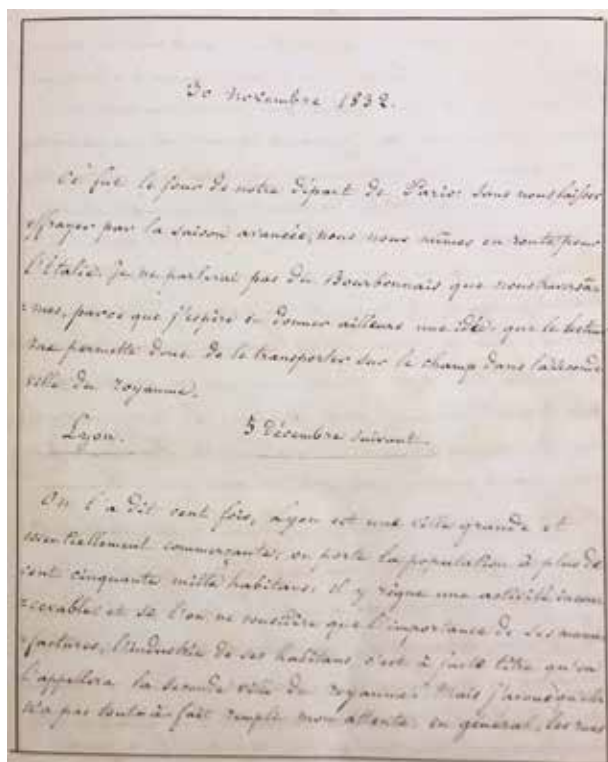 30 novembre 1832.
Ce fut le jour de notre départ de Paris. Sans nous laisser
effrayer par la saison avancée, nous nous mîmes en route pour
l'Italie. je ne parlerai pas du Bourbonnais que nous traversâ-
-mes, parce que j'espère en donner ailleurs une idée. que le lecteur
me permette donc de le transporter sur le champ dans la seconde
ville du royaume.
Lyon. 5 Décembre suivant.
On l'a dit cent fois, Lyon est une ville grande et
essentiellement commerçante; on porte la population à plus de
cent cinquante mille habitans; il y règne une activité incon-
-cevable; et si l'on ne considère que l'importance de ses manu-
-factures, l'industrie de ses habitans, c'est à juste titre qu'on
l'appellera la seconde ville du royaume. Mais j'avoue qu'elle
n'a pas tout-à-fait rempli mon attente. en général, les rues